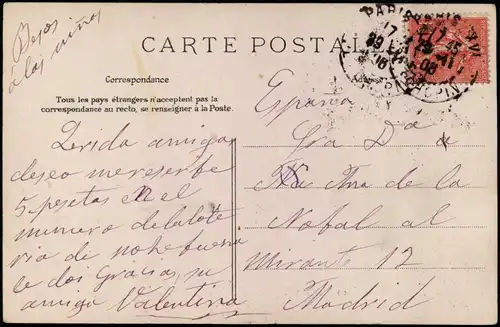 Besos
á las niñas
CARTE POSTALE
Correspondance
Tous les pays étrangers n'acceptent pas la
correspondance au recto, se renseigner à la Poste.
Adresse
PARIS
Qerida amiga
deseo mereserbe
5 pesetas en el
numero de la lote
ria de nohebuena
le dos Gracias, su
amiga Valentina
Espana
Sra Da
Ana de la
Nafal al
Mirante 12
Madrid